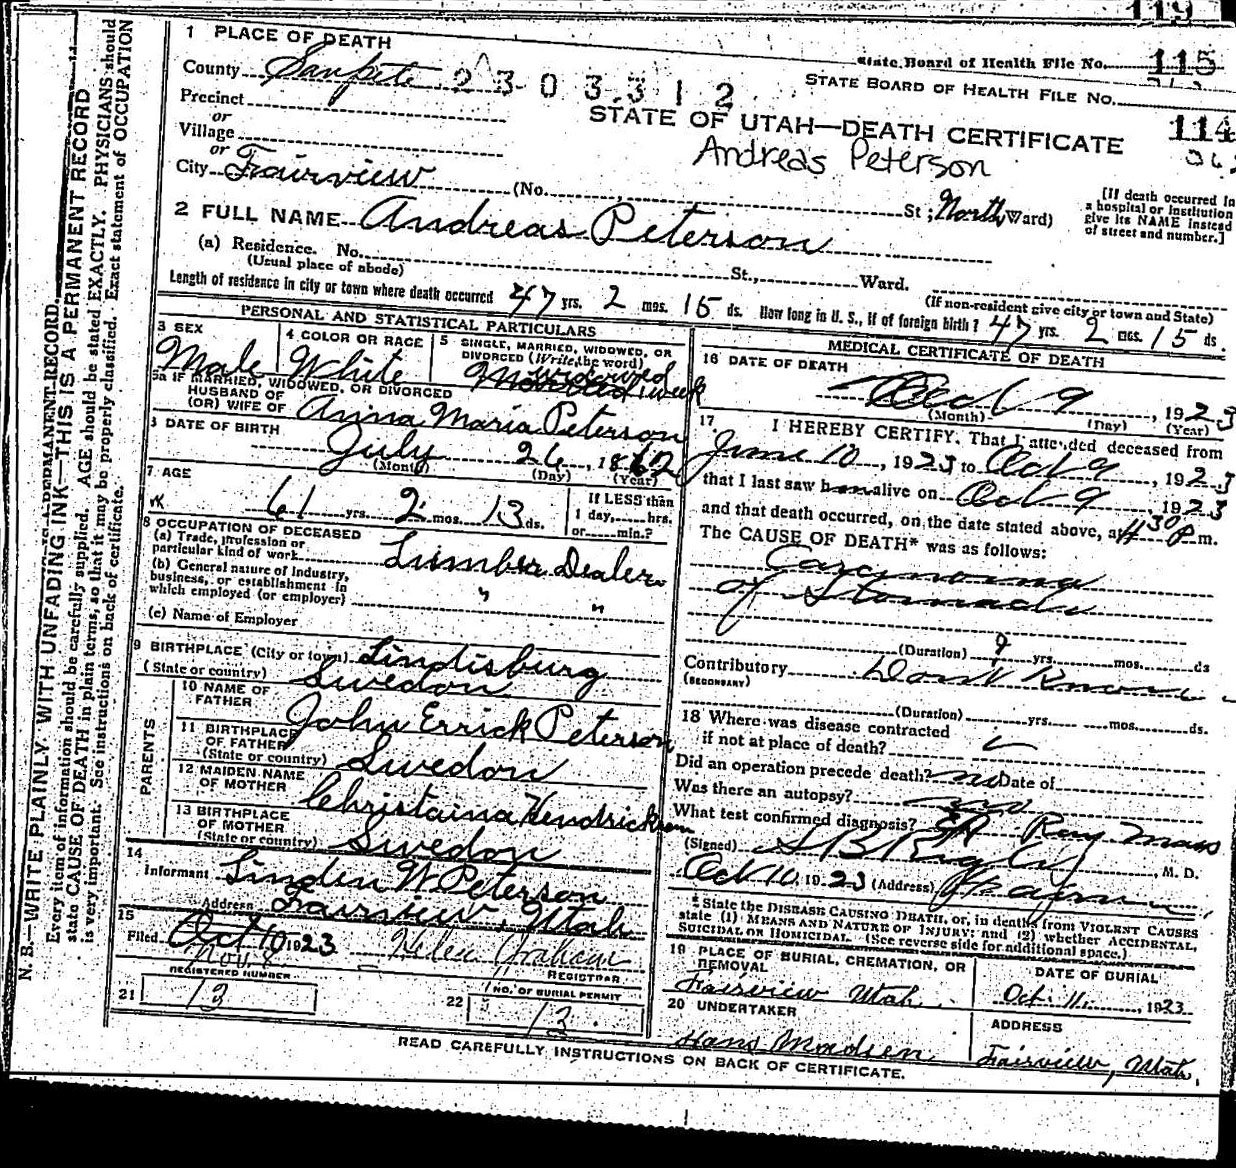 119
1 PLACE OF DEATH
State Board of Health File No. 115
County Sanpete 2303312
STATE BOARD OF HEALTH FILE NO. 114
Precinct
or
STATE OF UTAH—DEATH CERTIFICATE
Village
or
Andreas Peterson
City Fairview (No. St; North Ward)
[If death occurred in
a hospital or institution
give its NAME instead
of street and number.]
2 FULL NAME Andreas Peterson
(a) Residence. No. St., Ward.
(Usual place of abode)
(If non-resident give city or town and State)
Length of residence in city or town where death occurred 47 yrs. 2 mos. 15 ds. How long in U. S., if of foreign birth? 47 yrs. 2 mos. 15 ds.
PERSONAL AND STATISTICAL PARTICULARS
3 SEX
Male
4 COLOR OR RACE
White
5 SINGLE, MARRIED, WIDOWED, OR
DIVORCED (Write the word)
widowed
5a IF MARRIED, WIDOWED, OR DIVORCED
HUSBAND OF
(OR) WIFE OF Anna Maria Peterson
6 DATE OF BIRTH
July 26, 1862
(Month) (Day) (Year)
7 AGE
61 yrs. 2 mos. 13 ds.
If LESS than
1 day, hrs.
or min.?
8 OCCUPATION OF DECEASED
(a) Trade, profession or
particular kind of work Lumber Dealer
(b) General nature of Industry,
business, or establishment in
which employed (or employer) " "
(c) Name of Employer
9 BIRTHPLACE (City or town) Lindisburg
(State or country) Swedon
PARENTS
10 NAME OF
FATHER John Errick Peterson
11 BIRTHPLACE
OF FATHER
(State or country) Swedon
12 MAIDEN NAME
OF MOTHER Christaina Hendricksen
13 BIRTHPLACE
OF MOTHER
(State or country) Swedon
14
Informant Linden W Peterson
Address Fairview, Utah
15
Filed Oct 10 1923 Helen Graham
Nov. 8
REGISTRAR
REGISTERED NUMBER
21 13
NO. OF BURIAL PERMIT
22 13
MEDICAL CERTIFICATE OF DEATH
16 DATE OF DEATH
Oct 9, 1923
(Month) (Day) (Year)
17. I HEREBY CERTIFY, That I attended deceased from
June 10, 1923 to Oct 9, 1923
that I last saw him alive on Oct 9 1923
and that death occurred, on the date stated above, at 4 30 P m.
The CAUSE OF DEATH* was as follows:
Carcinoma
of Stomach
(Duration) yrs. mos. ds
Contributory Don't Know
(SECONDARY)
(Duration) yrs. mos. ds.
18 Where was disease contracted
if not at place of death?
Did an operation precede death? no Date of
Was there an autopsy? no
What test confirmed diagnosis? X Ray
(Signed) , M. D.
Oct 10 1923 (Address)
* State the DISEASE CAUSING DEATH, or, in deaths from VIOLENT CAUSES
state (1) MEANS AND NATURE OF INJURY; and (2) whether ACCIDENTAL,
SUICIDAL OR HOMICIDAL. (See reverse side for additional space.)
19 PLACE OF BURIAL, CREMATION, OR
REMOVAL
Fairview Utah
DATE OF BURIAL
Oct. 11, 1923
20 UNDERTAKER
Hans Madsen
ADDRESS
Fairview, Utah.
READ CAREFULLY INSTRUCTIONS ON BACK OF CERTIFICATE.
N. B.—WRITE PLAINLY, WITH UNFADING INK—THIS IS A PERMANENT RECORD
Every item of information should be carefully supplied. AGE should be stated EXACTLY. PHYSICIANS should
state CAUSE OF DEATH in plain terms, so that it may be properly classified. Exact statement of OCCUPATION
is very important. See instructions on back of certificate.